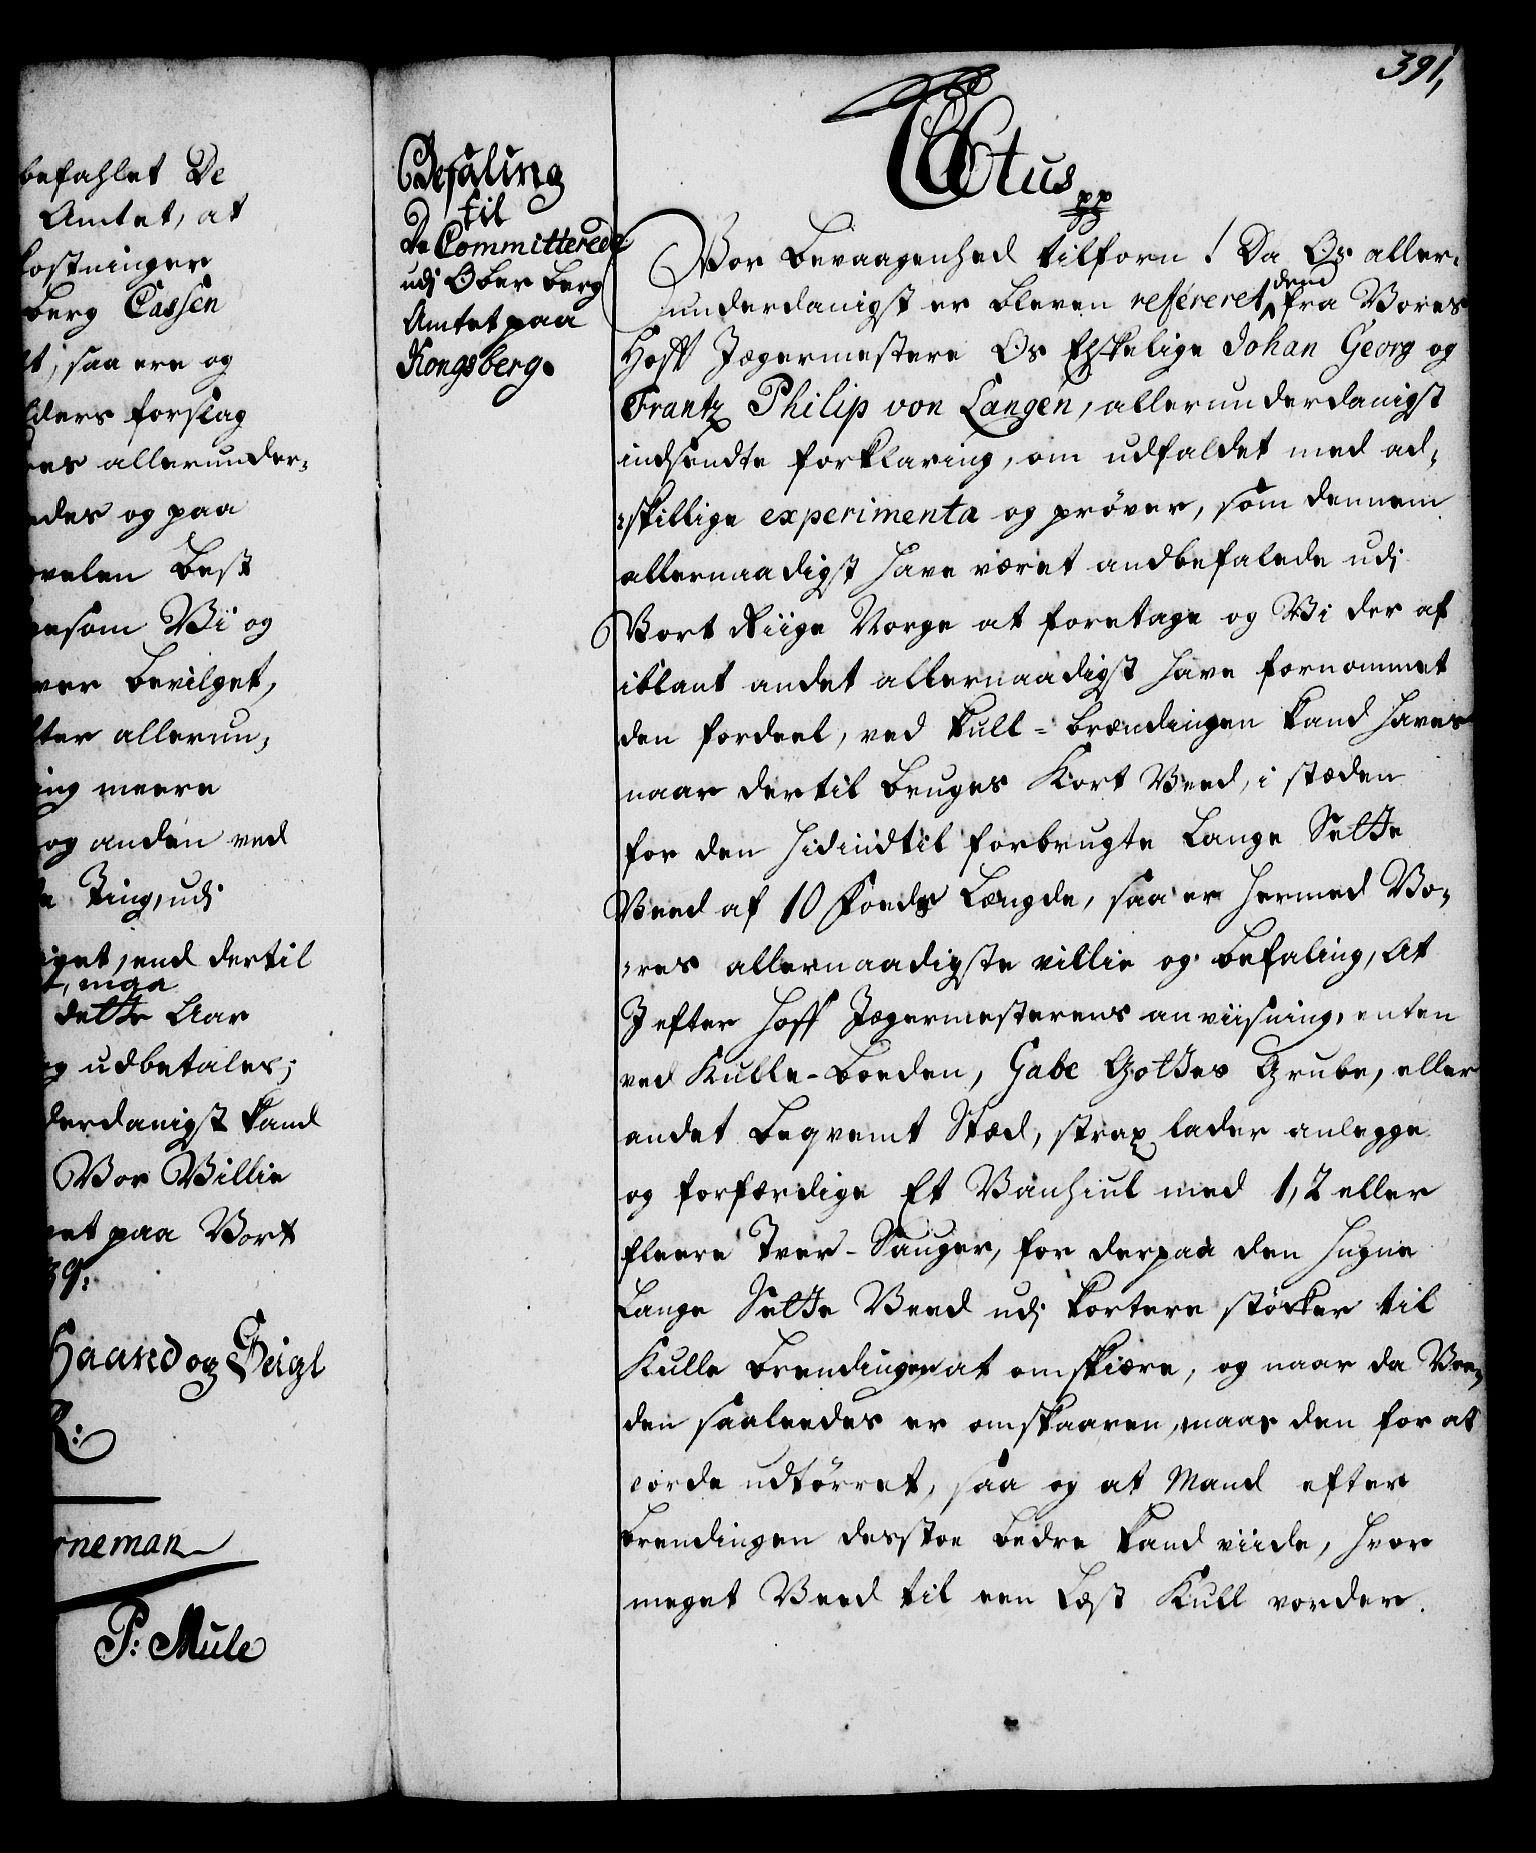 391,
befahlet De
Amtet, at
kostninger
berg Cassen
et, saa ere og
lders forslag
res allerunder-
edes og paa
velen best
gesom Vi og
ver bevilget,
fter allerun-
ing meere
og anden ved
Ting, udi
get, end dertil
t, maa
dette Aar
og udbetales;
derdanigst kand
Vor Villie
vet paa Vort
39:
Haand og Seigl
R:
rneman
P: Mule
Befaling
til
De Committerede
udi Ober Berg
Amtet paa
Kongsberg.
C6tus pp
Vor bevaagenhed tilforn! Da Os aller-
underdanigst er bleven refereret, dend fra Vores
Hoff Jægermestere Os Elskelige Johan Georg og
Frantz Philip von Langen, allerunderdanigst
indsendte forklaring, om udfaldet med ad-
skillige experimenta og prøver, som dennem
allernaadigst have været andbefalede udi
Vort Riige Norge at foretage og Vi der af
iblant andet allernaadigst have fornommet
den fordeel, ved kull-brændingen kand haves
naar dertil bruges Kort Veed, i stæden
for den hidindtil forbrugte lange Sette
Veed af 10 Foeds Længde, saa er hermed Vo-
res allernaadigste villie og befaling, At
I efter Hoff Jægermesterens anviisning, enten
ved Kulle-Boeden, Gabe Gottes Grube, eller
andet beqvemt Stæd, strax lader anlegge
og forfærdige Et Vanhiul med 1, 2 eller
fleere Tver-Sauger, for derpaa den hugne
Lange Sette Veed udi kortere støcker til
Kulle brendingen at omskiære, og naar da Vee-
den saaleedes er omskaaren, maae den for at
vorde udtørret, saa og at Mand efter
brendingen desstoe bedre kand viide, hvor
meget Veed til een Læst Kull vorder.